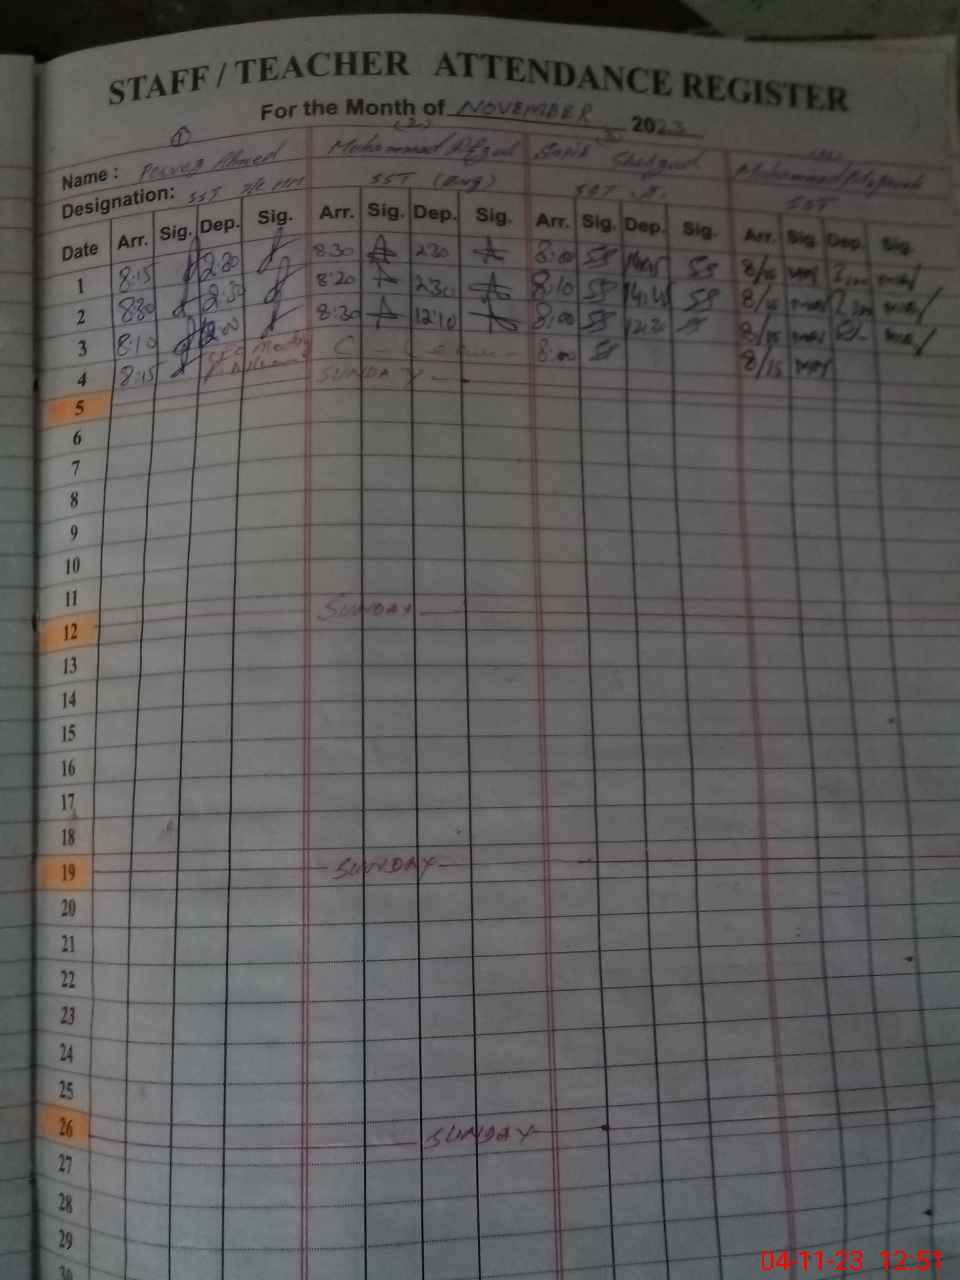 STAFF / TEACHER ATTENDANCE REGISTER
For the Month of NOVEMBER 2023
① (2)
Name : Pervez Ahmed Muhammad Afzal Shehzad Muhammad
Designation: SST SST (Eng) SST SST
Date Arr. Sig. Dep. Sig. Arr. Sig. Dep. Sig. Arr. Sig. Dep. Sig. Arr. Sig. Dep. Sig.
1 8:15 2:30 8:30 2:30 8:00 SS SS 8/10
2 8:30 2:30 8:20 2:30 8:10 SS 14:40 SS 8/10
3 8:10 12:00 8:30 12:10 8:00 SS 12:30 8/15
4 8:15 C Leave 8:00 8/15
5 SUNDAY
6
7
8
9
10
11
12 SUNDAY
13
14
15
16
17
18
19 SUNDAY
20
21
22
23
24
25
26 SUNDAY
27
28
29
30
04-11-23 12:51